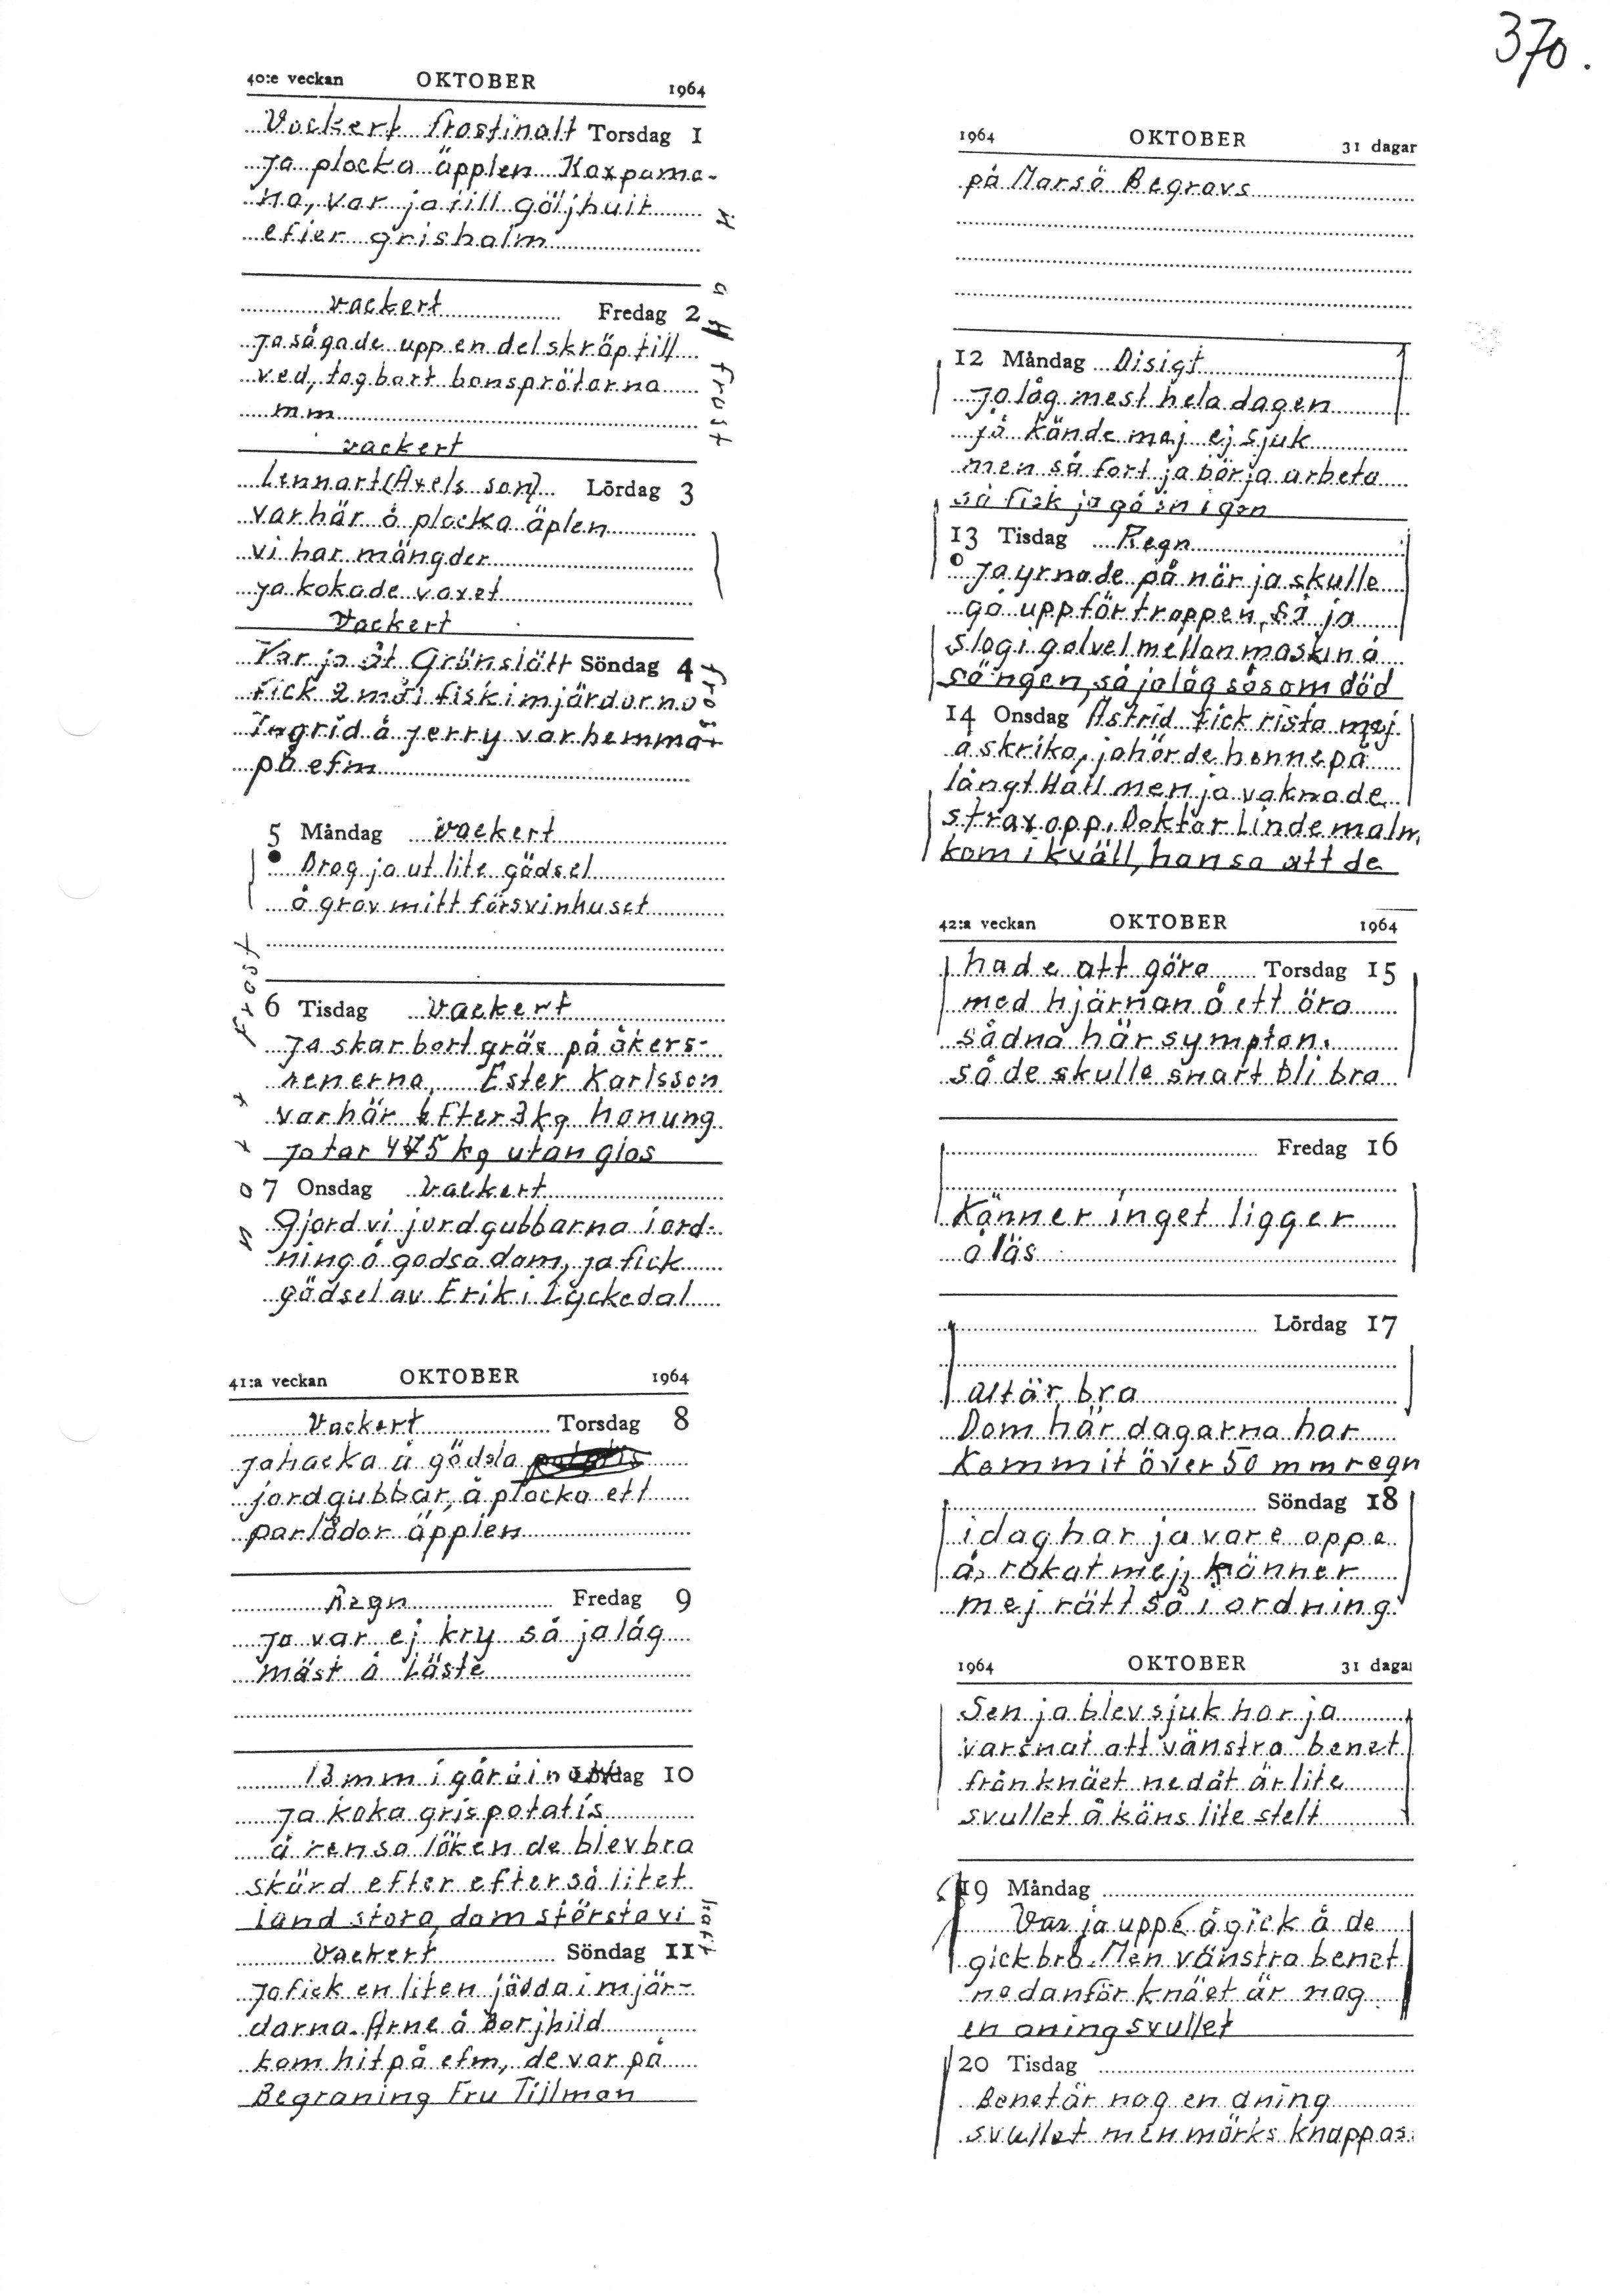 370.
40:e veckan OKTOBER 1964
Vackert frostinatt Torsdag 1
Ja plocka äpplen Kaxpama-
na, var ja till göljhult
efter grishalm
vackert Fredag 2
Ja sågade upp en del skräp till
ved, tog bort bonsprötarna
m.m
natt frost
vackert
Lennart (Axels son) Lördag 3
var här å plocka äplen
vi har mängder
ja kokade vaxet
Vackert
Var ja åt Grönslätt Söndag 4
fick 2 mål fisk i mjärdarna
Ingrid å Jerry var hemma
på efm
frost
5 Måndag vackert
Drog ja ut lite gödsel
å grov mitt för svinhuset
6 Tisdag vackert
Ja skar bort gräs på åkers-
renerna, Ester Karlsson
var här efter 3 kg honung
ja tar 4 75 kg utan glas
Frost
7 Onsdag Vackert
Gjord vi jordgubbarna i ord-
ning å godsa dom, ja fick
gödsel av Erik i Lyckedal
41:a veckan OKTOBER 1964
Vackert Torsdag 8
ja hacka å gödsla
jordgubbar, å plocka ett
par lådor äpplen
Regn Fredag 9
Ja var ej kry så ja låg
mäst å Läste
13 mm i går å i natt Lördag 10
Ja koka grispotatis
å rensa löken de blev bra
skärd efter efter så litet
land stora, dom största vi
haft
Vackert Söndag 11
Ja fick en liten jädda i mjär-
darna. Arne å Borjhild
kom hit på efm, de var på
Begraning Fru Tillman
1964 OKTOBER 31 dagar
på Marsö Begravs
12 Måndag Disigt
Ja låg mest hela dagen
ja kände mej ej sjuk
men så fort ja börja arbeta
så fick ja gå in igen
13 Tisdag Regn
Ja yrnade på när ja skulle
gå uppför trappen, så ja
slog i golvet mellan maskin å
sängen, så ja låg såsom död
14 Onsdag Astrid fick rista mej
å skrika, ja hörde henne på
långt Håll men ja vaknade
strax opp. Doktor Lindemalm
kom i kväll, han sa att de
42:a veckan OKTOBER 1964
hade att göra Torsdag 15
med hjärnan å ett öra
sådna här sympton.
så de skulle snart bli bra
Fredag 16
Känner inget ligger
å läs
Lördag 17
Alt är bra
Dom här dagarna har
Kommit över 50 mm regn
Söndag 18
idag har ja vare oppe
å rakat mej, känner
mej rätt så i ordning
1964 OKTOBER 31 daga
Sen ja blev sjuk har ja
varsnat att vänstra benet
från knäet nedåt är lite
svullet å käns lite stelt
19 Måndag
Var ja uppe å gick å de
gick bra. Men vänstra benet
nedanför knäet är nog
en aning svullet
20 Tisdag
Benet är nog en aning
svullet men märks knappas